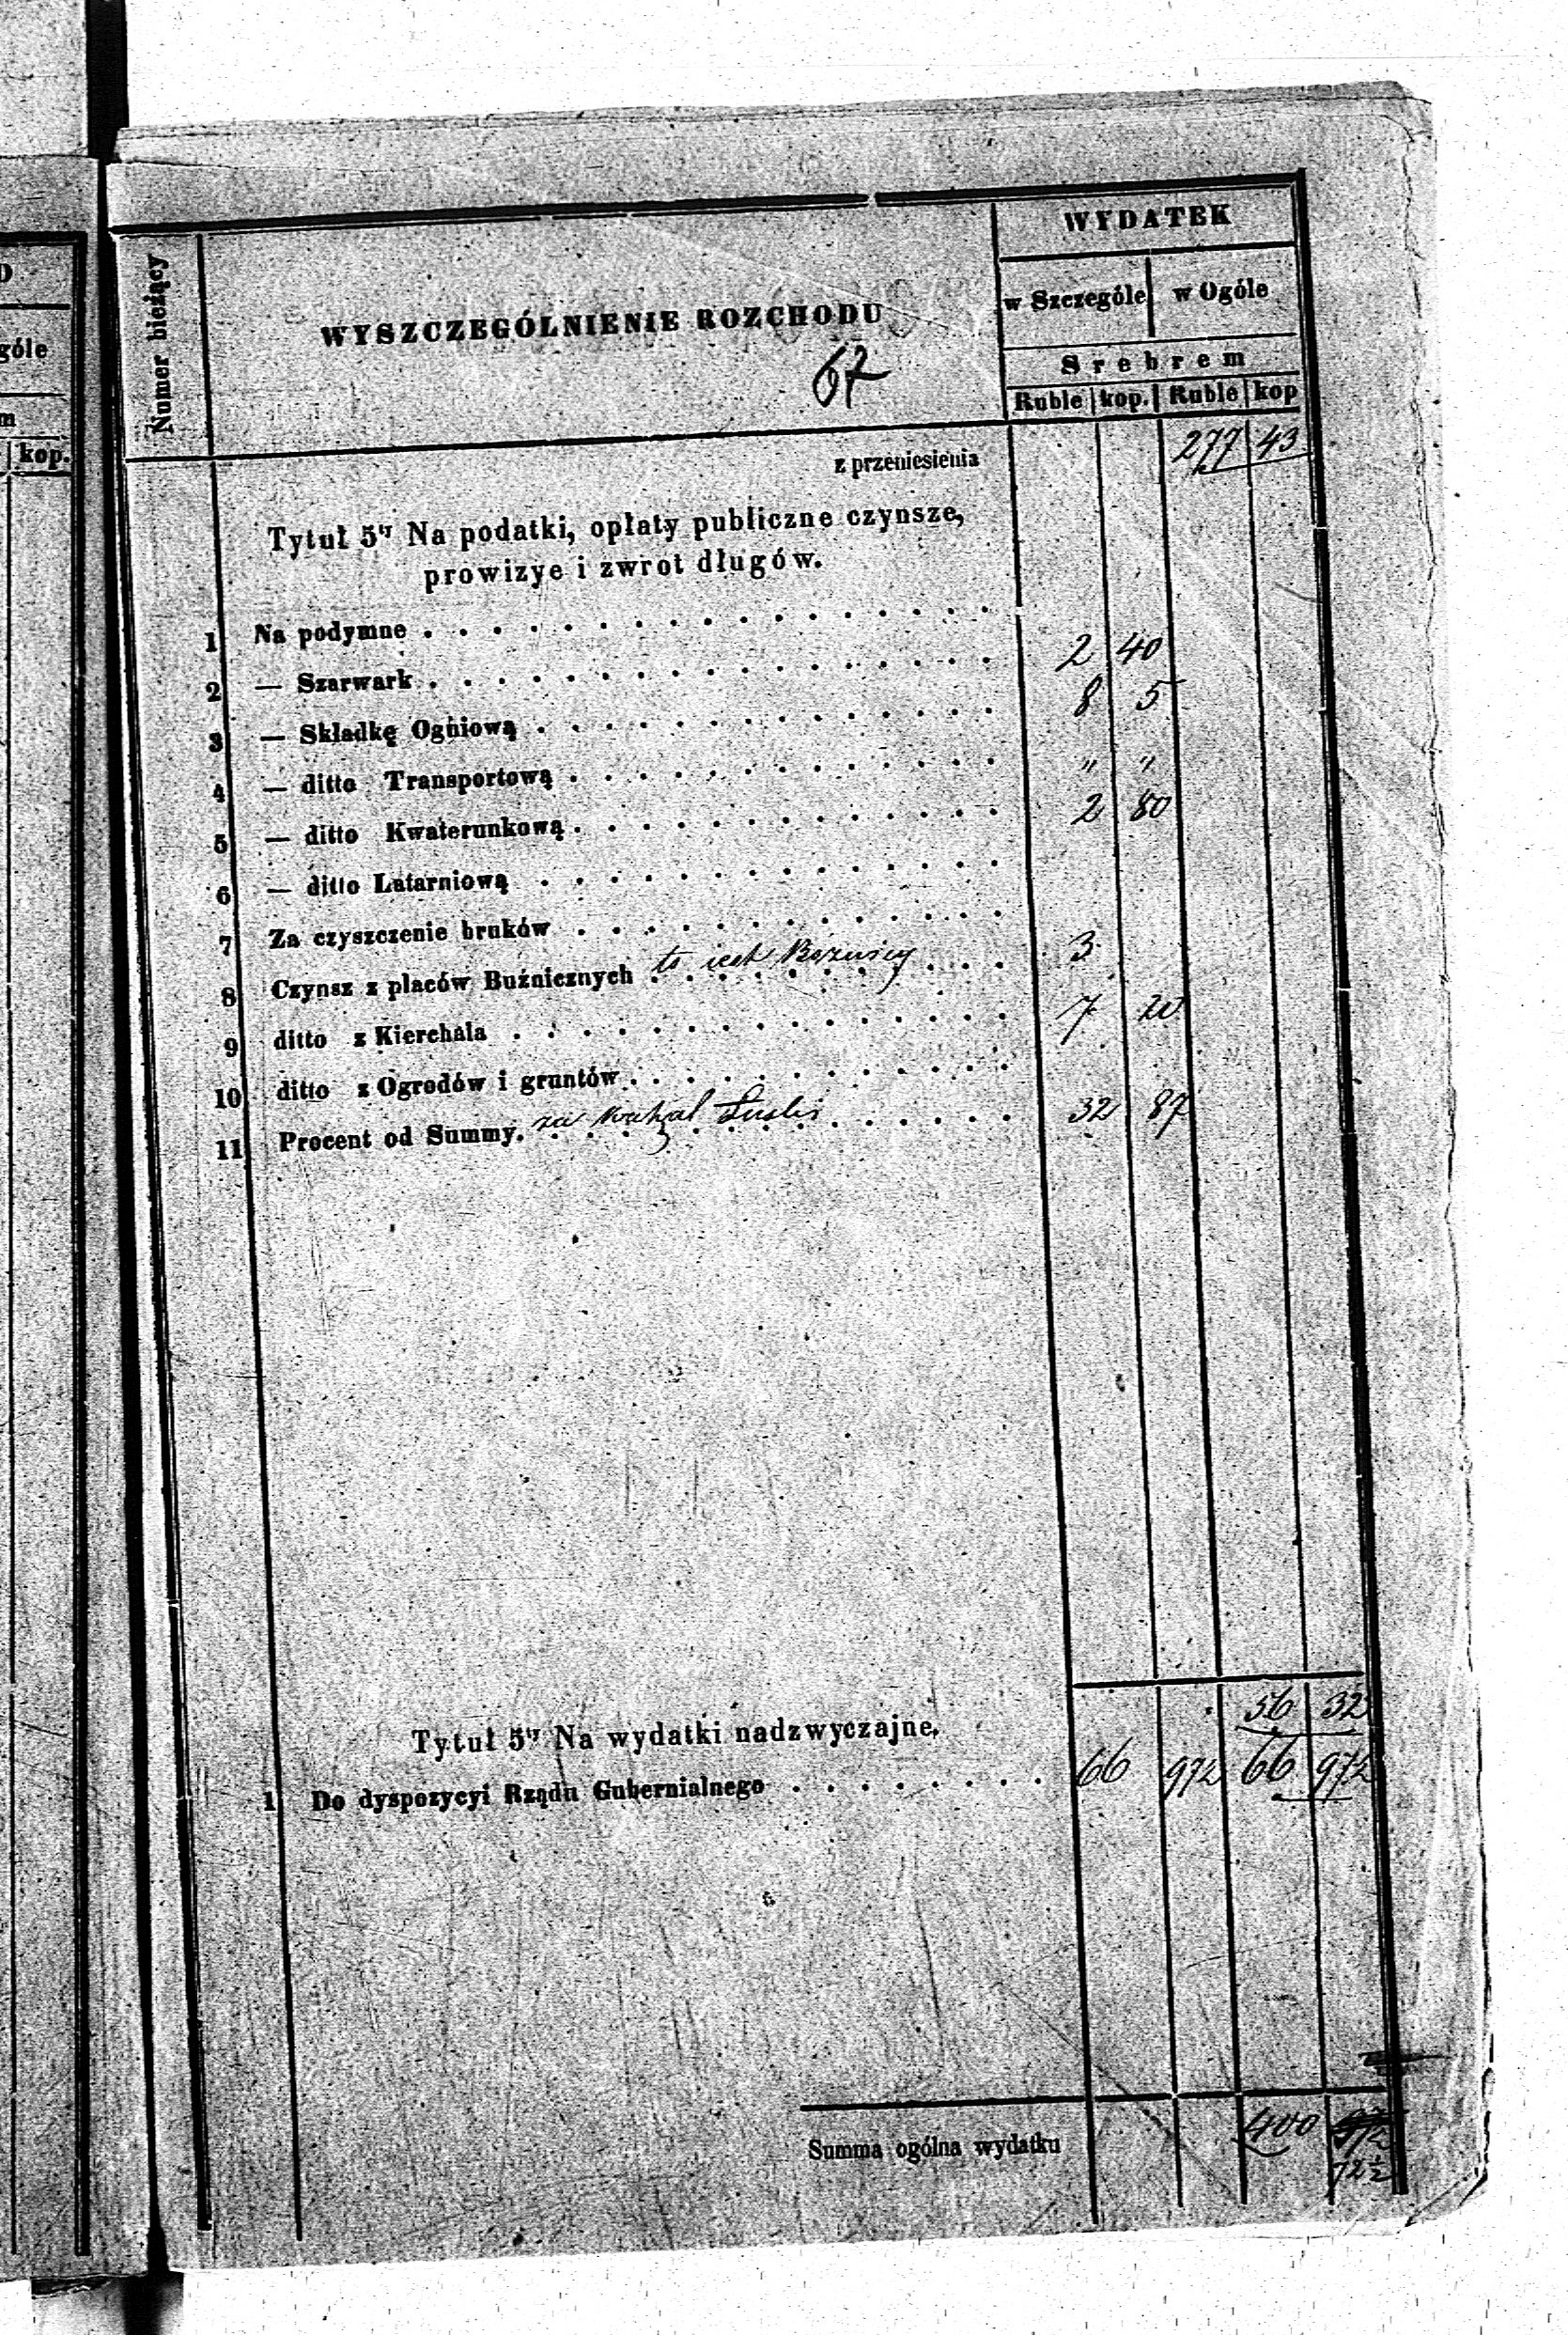 D
góle
m
kop.
Numer bieżący
WYSZCZEGÓLNIENIE ROZCHODU
67
WYDATEK
w Szczególe w Ogóle
Srebrem
Ruble kop. Ruble kop
z przeniesienia 277 43
Tytuł 5ty Na podatki, opłaty publiczne czynsze,
prowizye i zwrot długów.
1 Na podymne 2 40
2 — Szarwark 8 5
3 — Składkę Ogniową " "
4 — ditto Transportową 2 80
5 — ditto Kwaterunkową
6 — ditto Latarniową
7 Za czyszczenie bruków 3
8 Czynsz z placów Buźnicznych to jest Bożnicy 7 20
9 ditto z Kierchala
10 ditto z Ogrodów i gruntów 32 87
11 Procent od Summy za
56 32
Tytuł 5ty Na wydatki nadzwyczajne.
1 Do dyspozycyi Rządu Gubernialnego 66 97½ 66 97½
Summa ogólna wydatku 400
72½